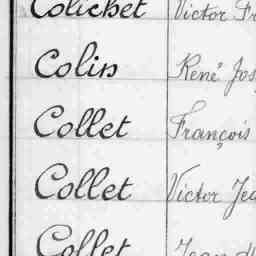 Colichet Victor Fr
Colin René Jos
Collet François
Collet Victor Jea
Collet Jean